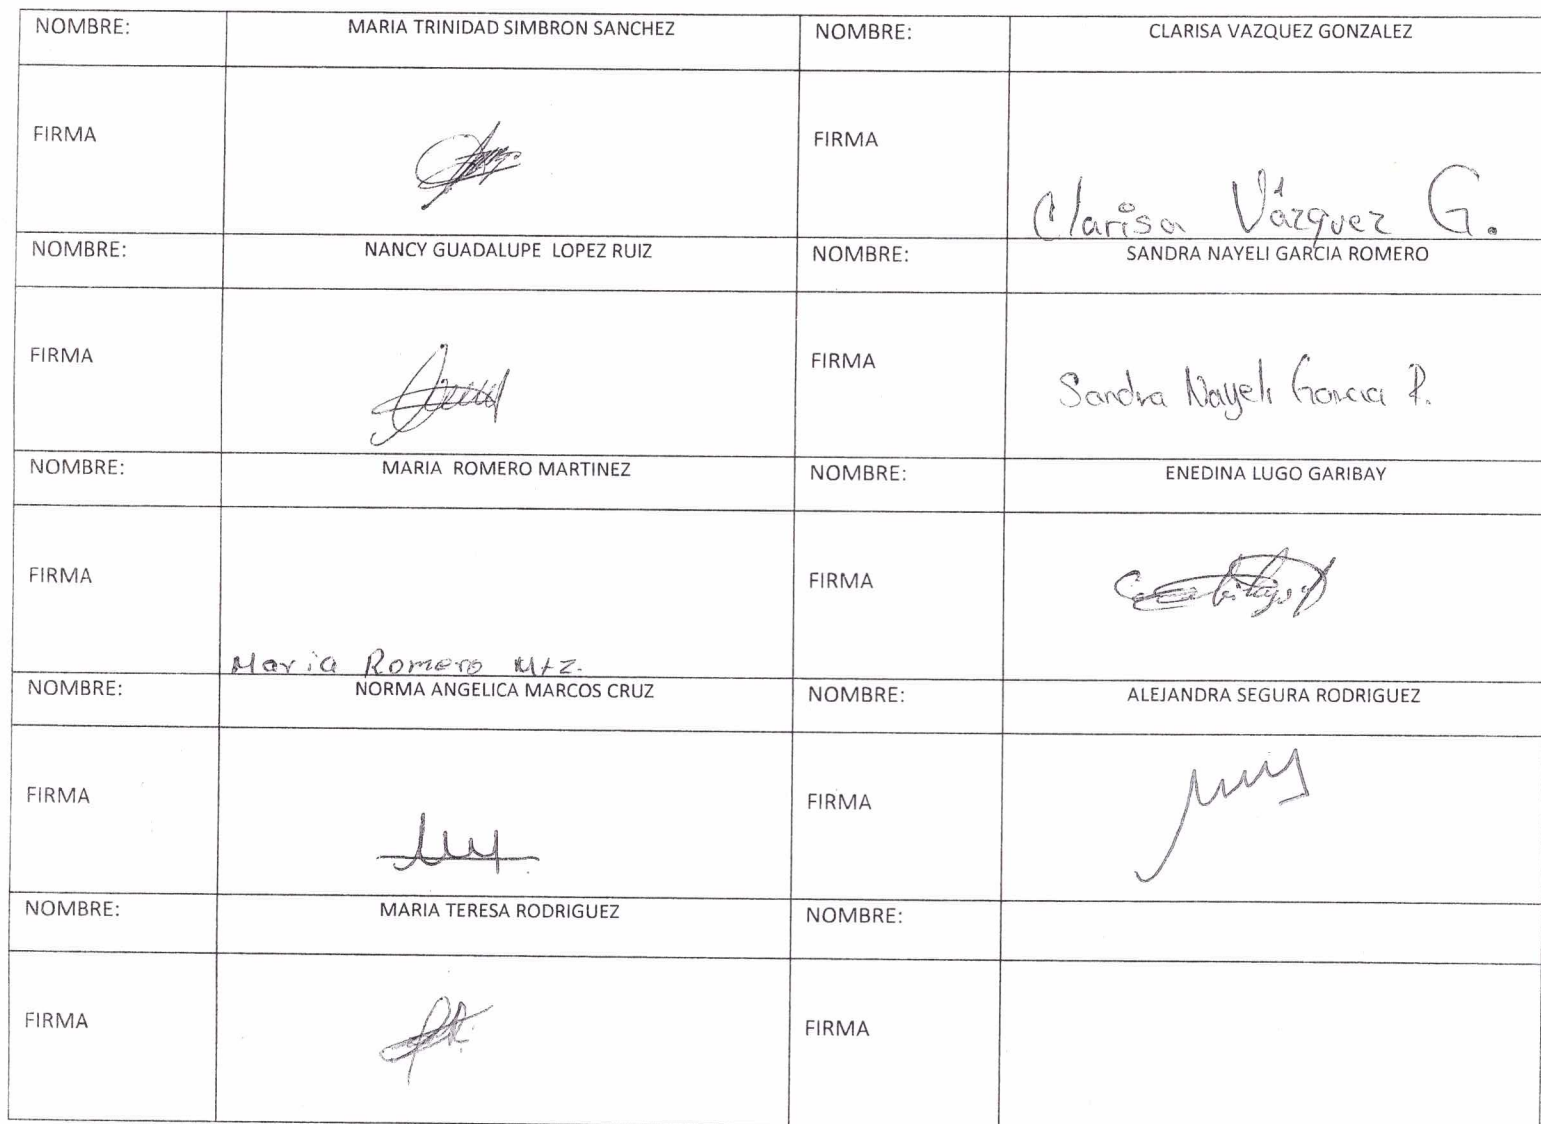 NOMBRE: MARIA TRINIDAD SIMBRON SANCHEZ NOMBRE: CLARISA VAZQUEZ GONZALEZ
FIRMA FIRMA
Clarisa Vázquez G.
NOMBRE: NANCY GUADALUPE LOPEZ RUIZ NOMBRE: SANDRA NAYELI GARCIA ROMERO
FIRMA FIRMA Sandra Nayeli Garcia R.
NOMBRE: MARIA ROMERO MARTINEZ NOMBRE: ENEDINA LUGO GARIBAY
FIRMA FIRMA
Maria Romero Mtz.
NOMBRE: NORMA ANGELICA MARCOS CRUZ NOMBRE: ALEJANDRA SEGURA RODRIGUEZ
FIRMA FIRMA
NOMBRE: MARIA TERESA RODRIGUEZ NOMBRE:
FIRMA FIRMA